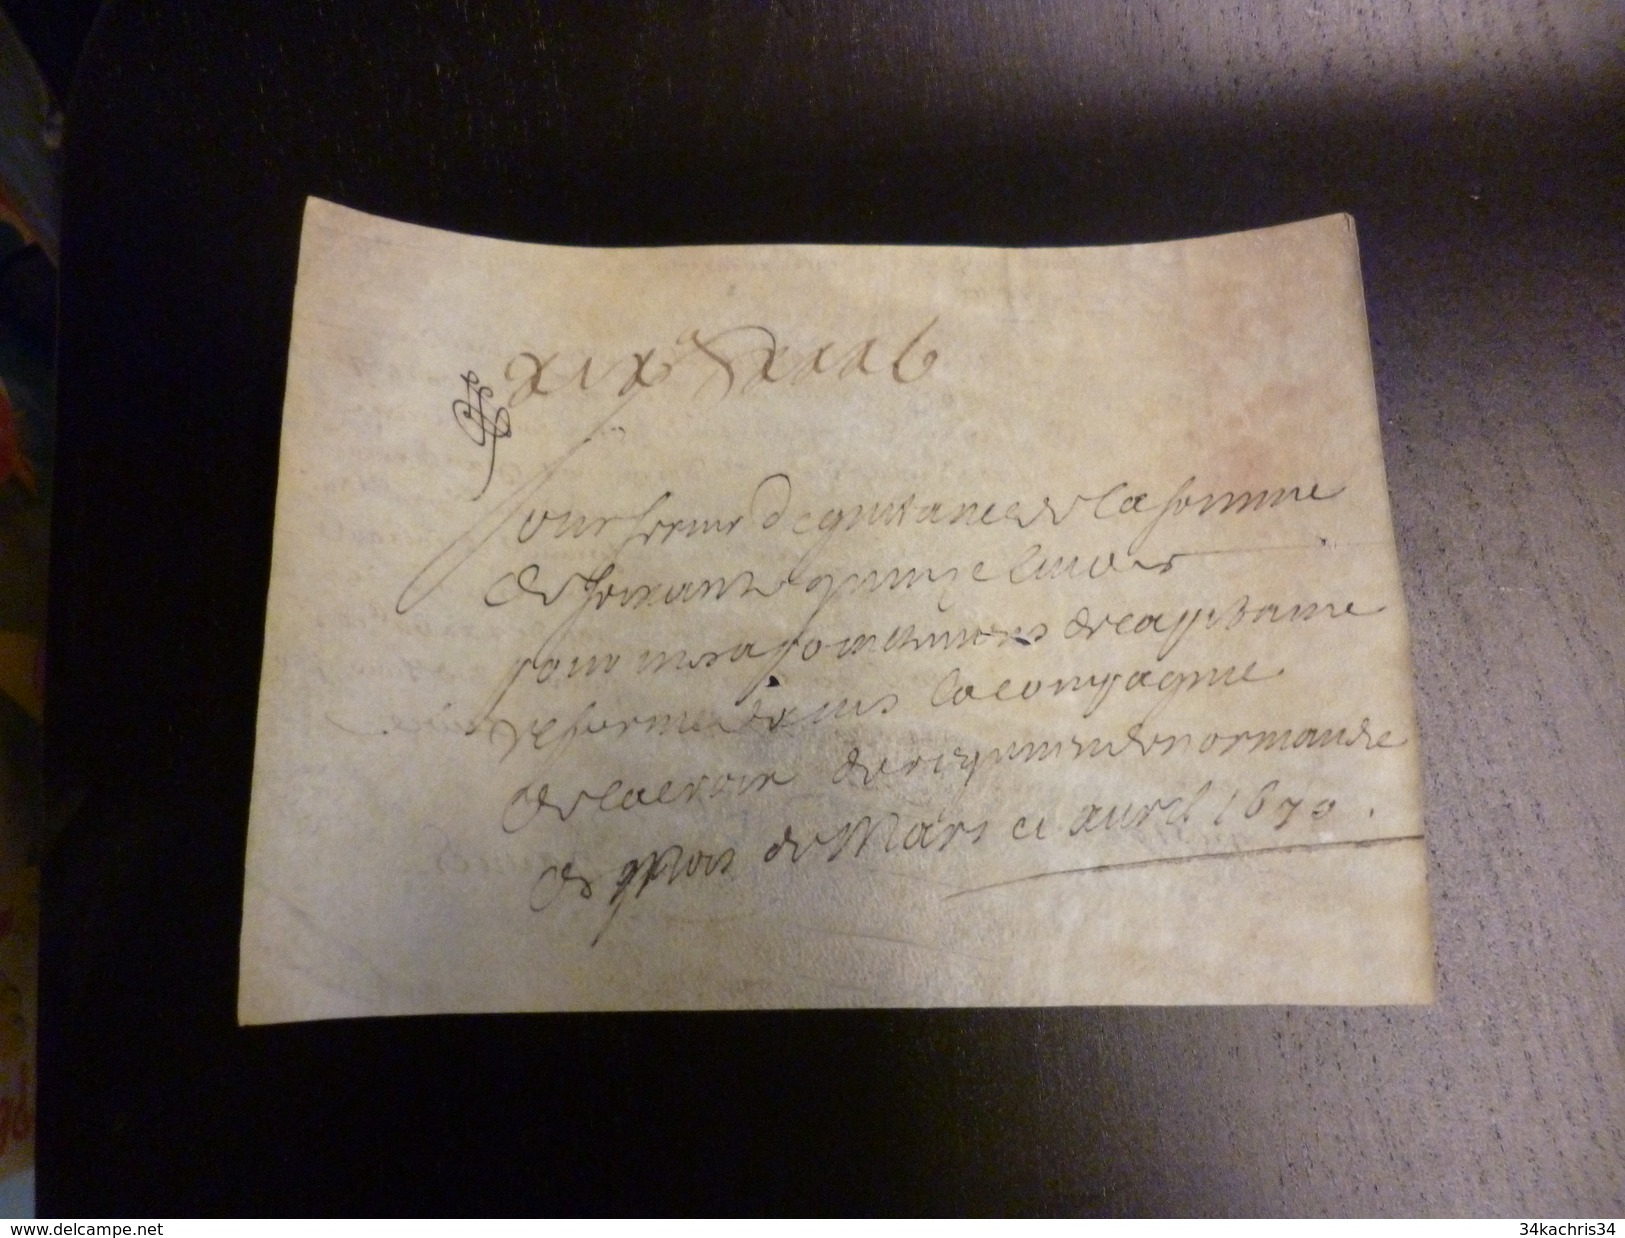 Pour servir de quittance de la somme
de soixante quinze livres
pour mes apointemens de capitaine
reformé dans la compagnie
de lacroix du regiment de normandie
de mois de Mars et avril 1670.
www.delcampe.net
34kachris34